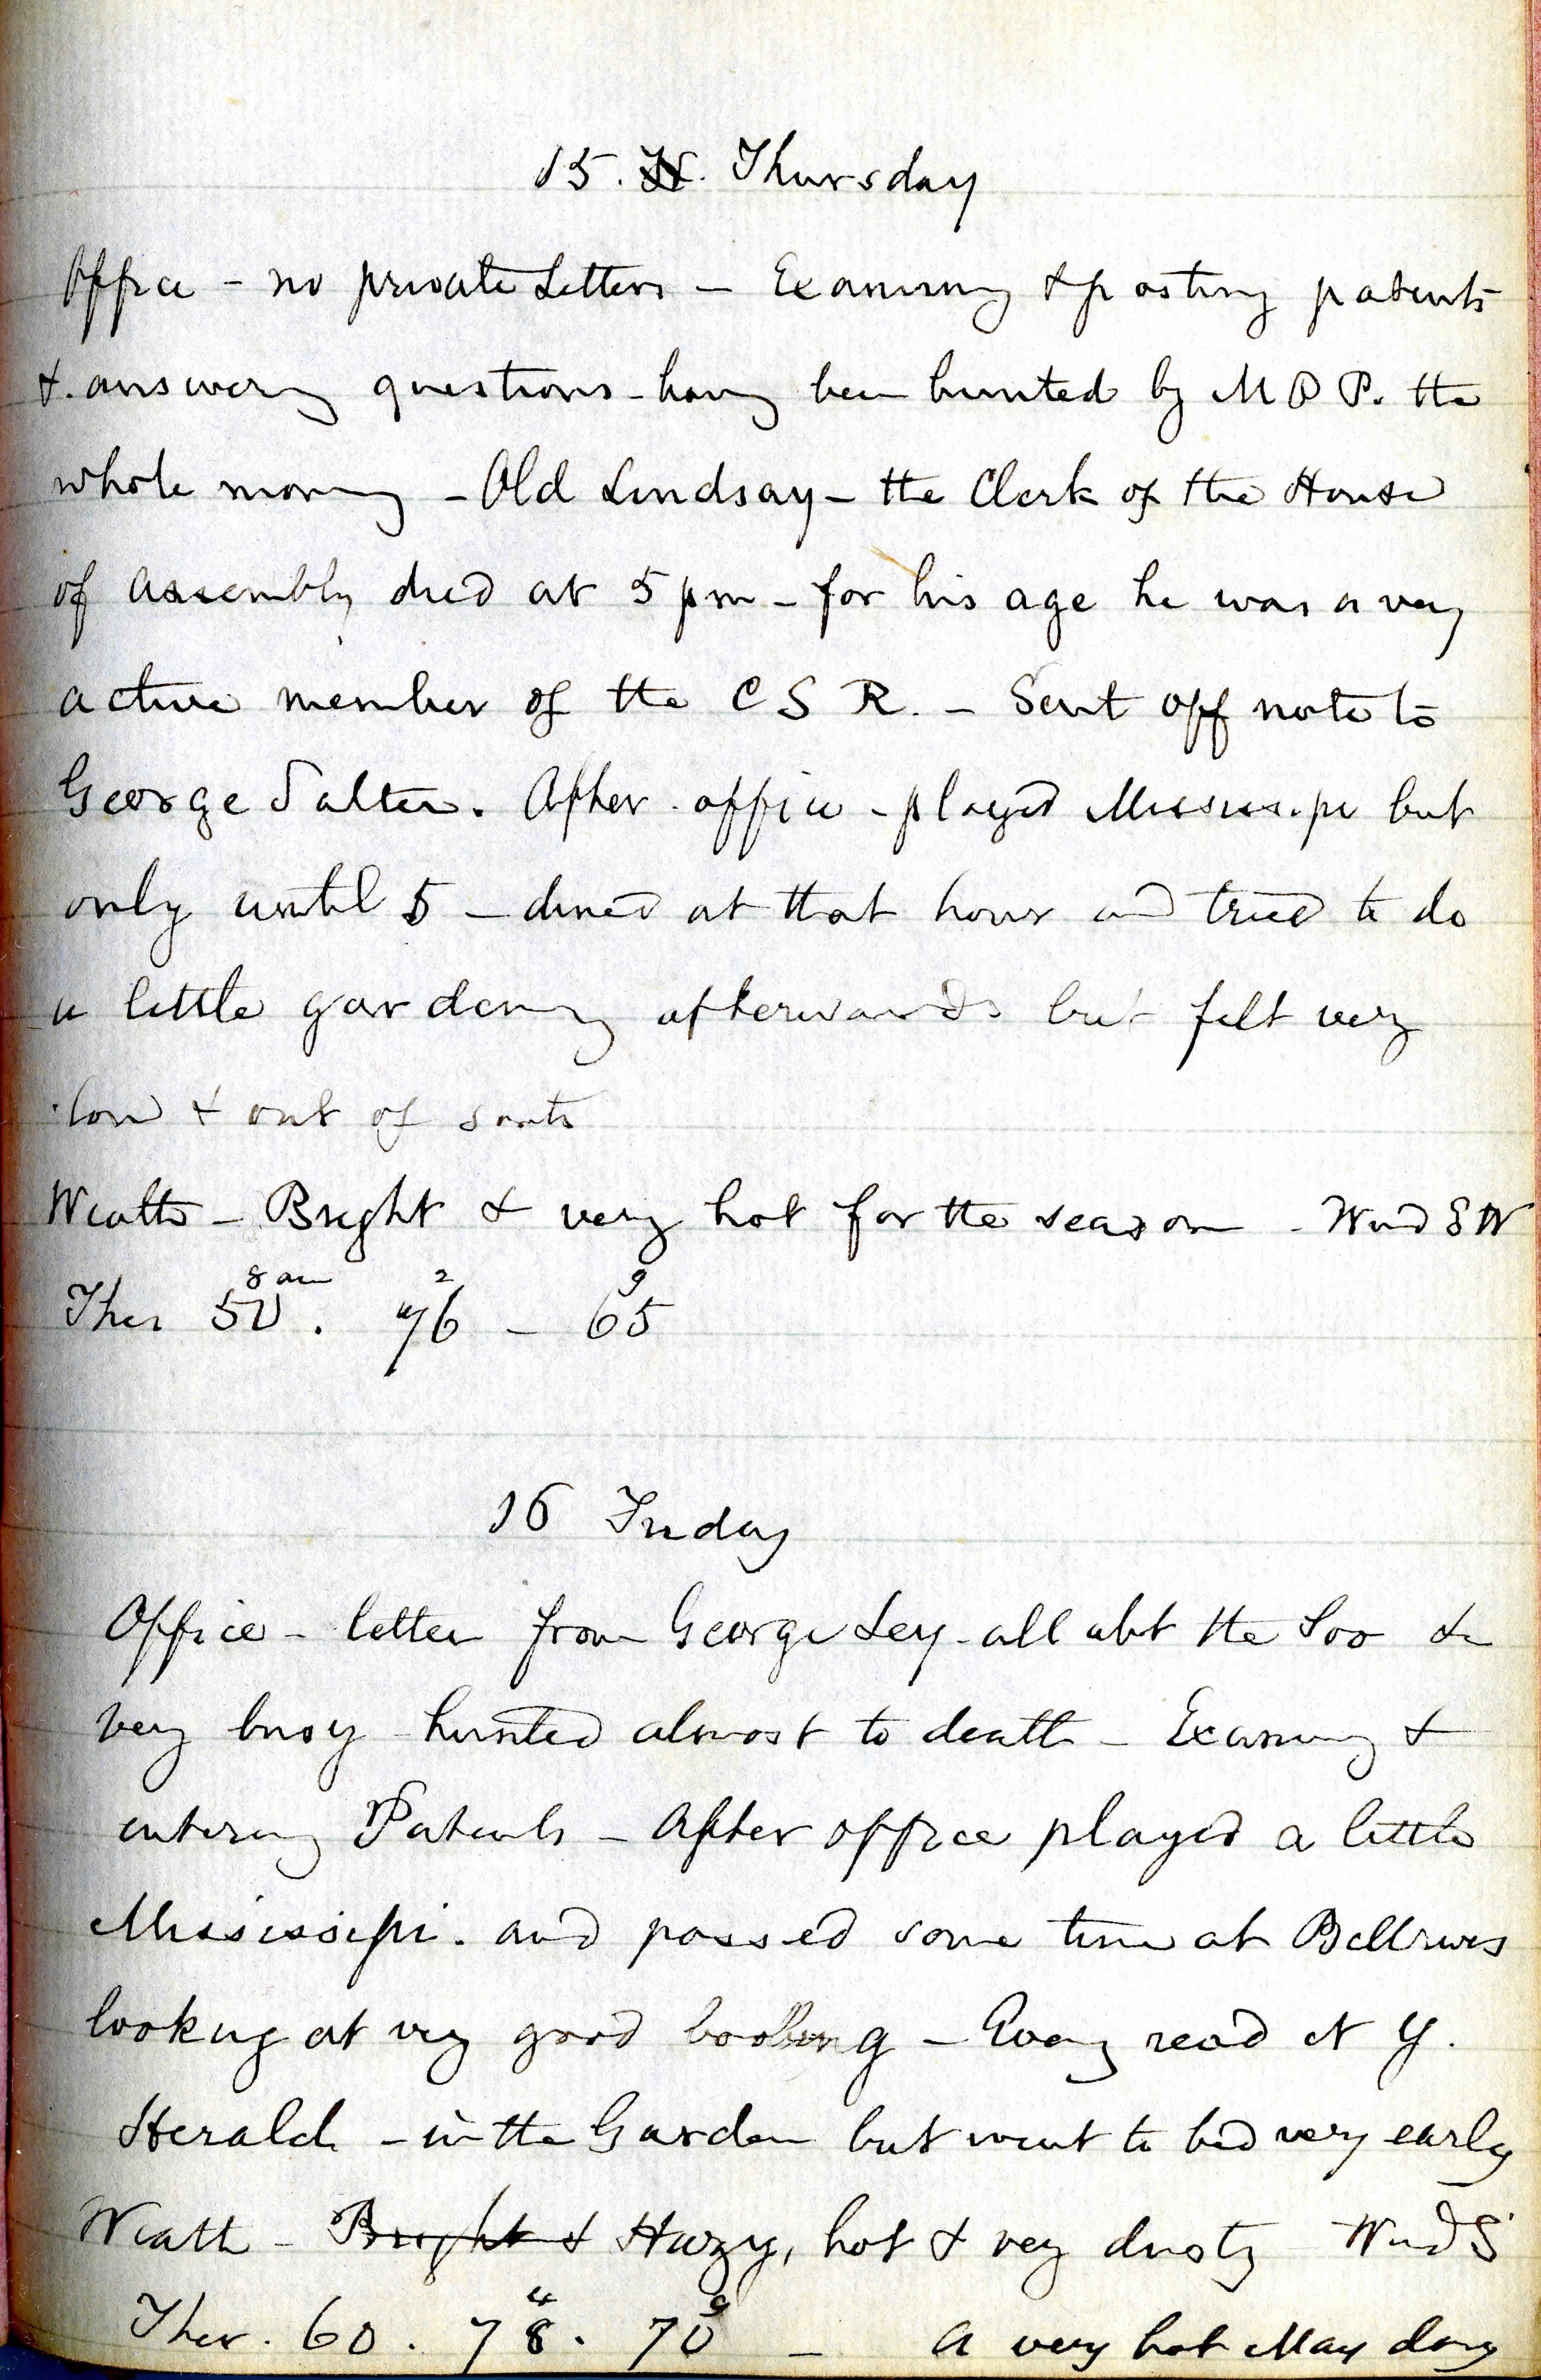 15. Thursday
Office - no private Letters - Examining & posting patents
& answering questions - having been hunted by M P P. the
whole morning - Old Lindsay - the Clerk of the House
of assembly died at 5 pm - for his age he was a very
active member of the C S R. - Sent off note to
George Salter. After office - played Missisipi but
only until 5 - dined at that hour and tried to do
a little gardening afterwards but felt very
low & out of sorts
Weather - Bright & very hot for the season - Wind SW
8 am 2 9
Ther 50. 76 - 65
16 Friday
Office - letter from George Ley - all abt the Soo &c
very busy - hunted almost to death - Examining &
entering Patents - After office played a little
Mississipi. and passed some time at
looking at very good - Eveng read N Y.
Herald - in the Garden but went to bed very early
Weath - Bright & Hazy, hot & very dusty Wind S
4 9
Ther. 60. 78. 70 - A very hot May day